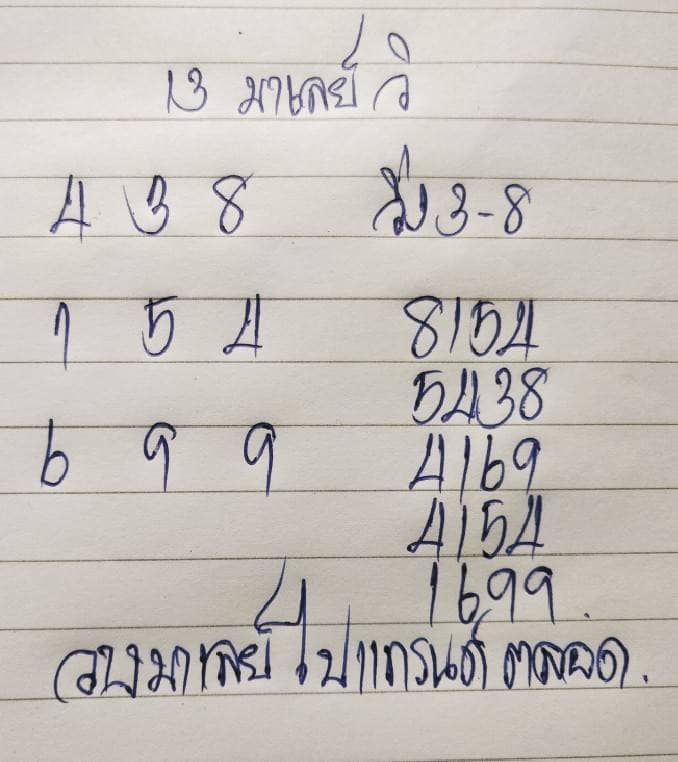 13 มาเลย์ วิ
4 3 8 วิ่ง 3-8
1 5 4 8154
5438
6 9 9 4169
4154
1699
วางมาเลย์ ไปแทรนด์ ตลอด.